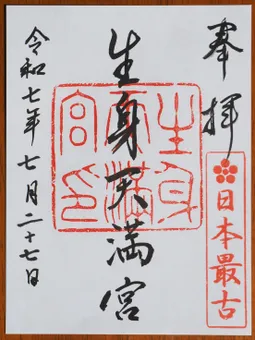 奉拝
日本最古
生身天満宮
生身天満宮印
令和七年七月二十七日